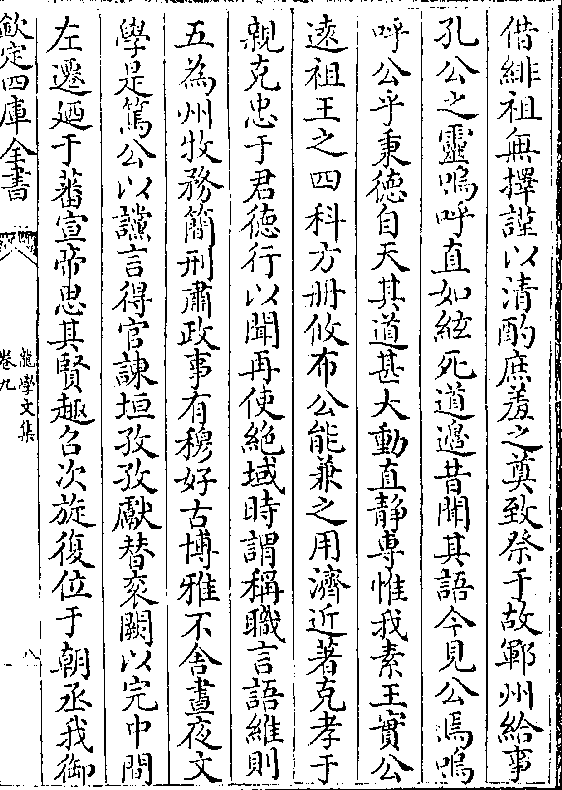 借緋祖無擇謹以清酌庶羞之奠致祭于故鄆州給事
孔公之靈嗚呼直如絃死道邊昔聞其語今見公焉嗚
呼公乎秉徳自天其道甚大動直静専惟我素王實公
遠祖王之四科方册攸布公能兼之用濟近著克孝于
親克忠于君徳行以聞再使絶域時謂稱職言語維則
五為州牧務簡刑肅政事有穆好古博雅不舎晝夜文
學是篤公以讜言得官諫垣孜孜獻替衮闕以完中間
左遷廼于蕃宣帝思其賢趣召次旋復位于朝丞我御
欽定四庫全書
龍學文集
卷九
八